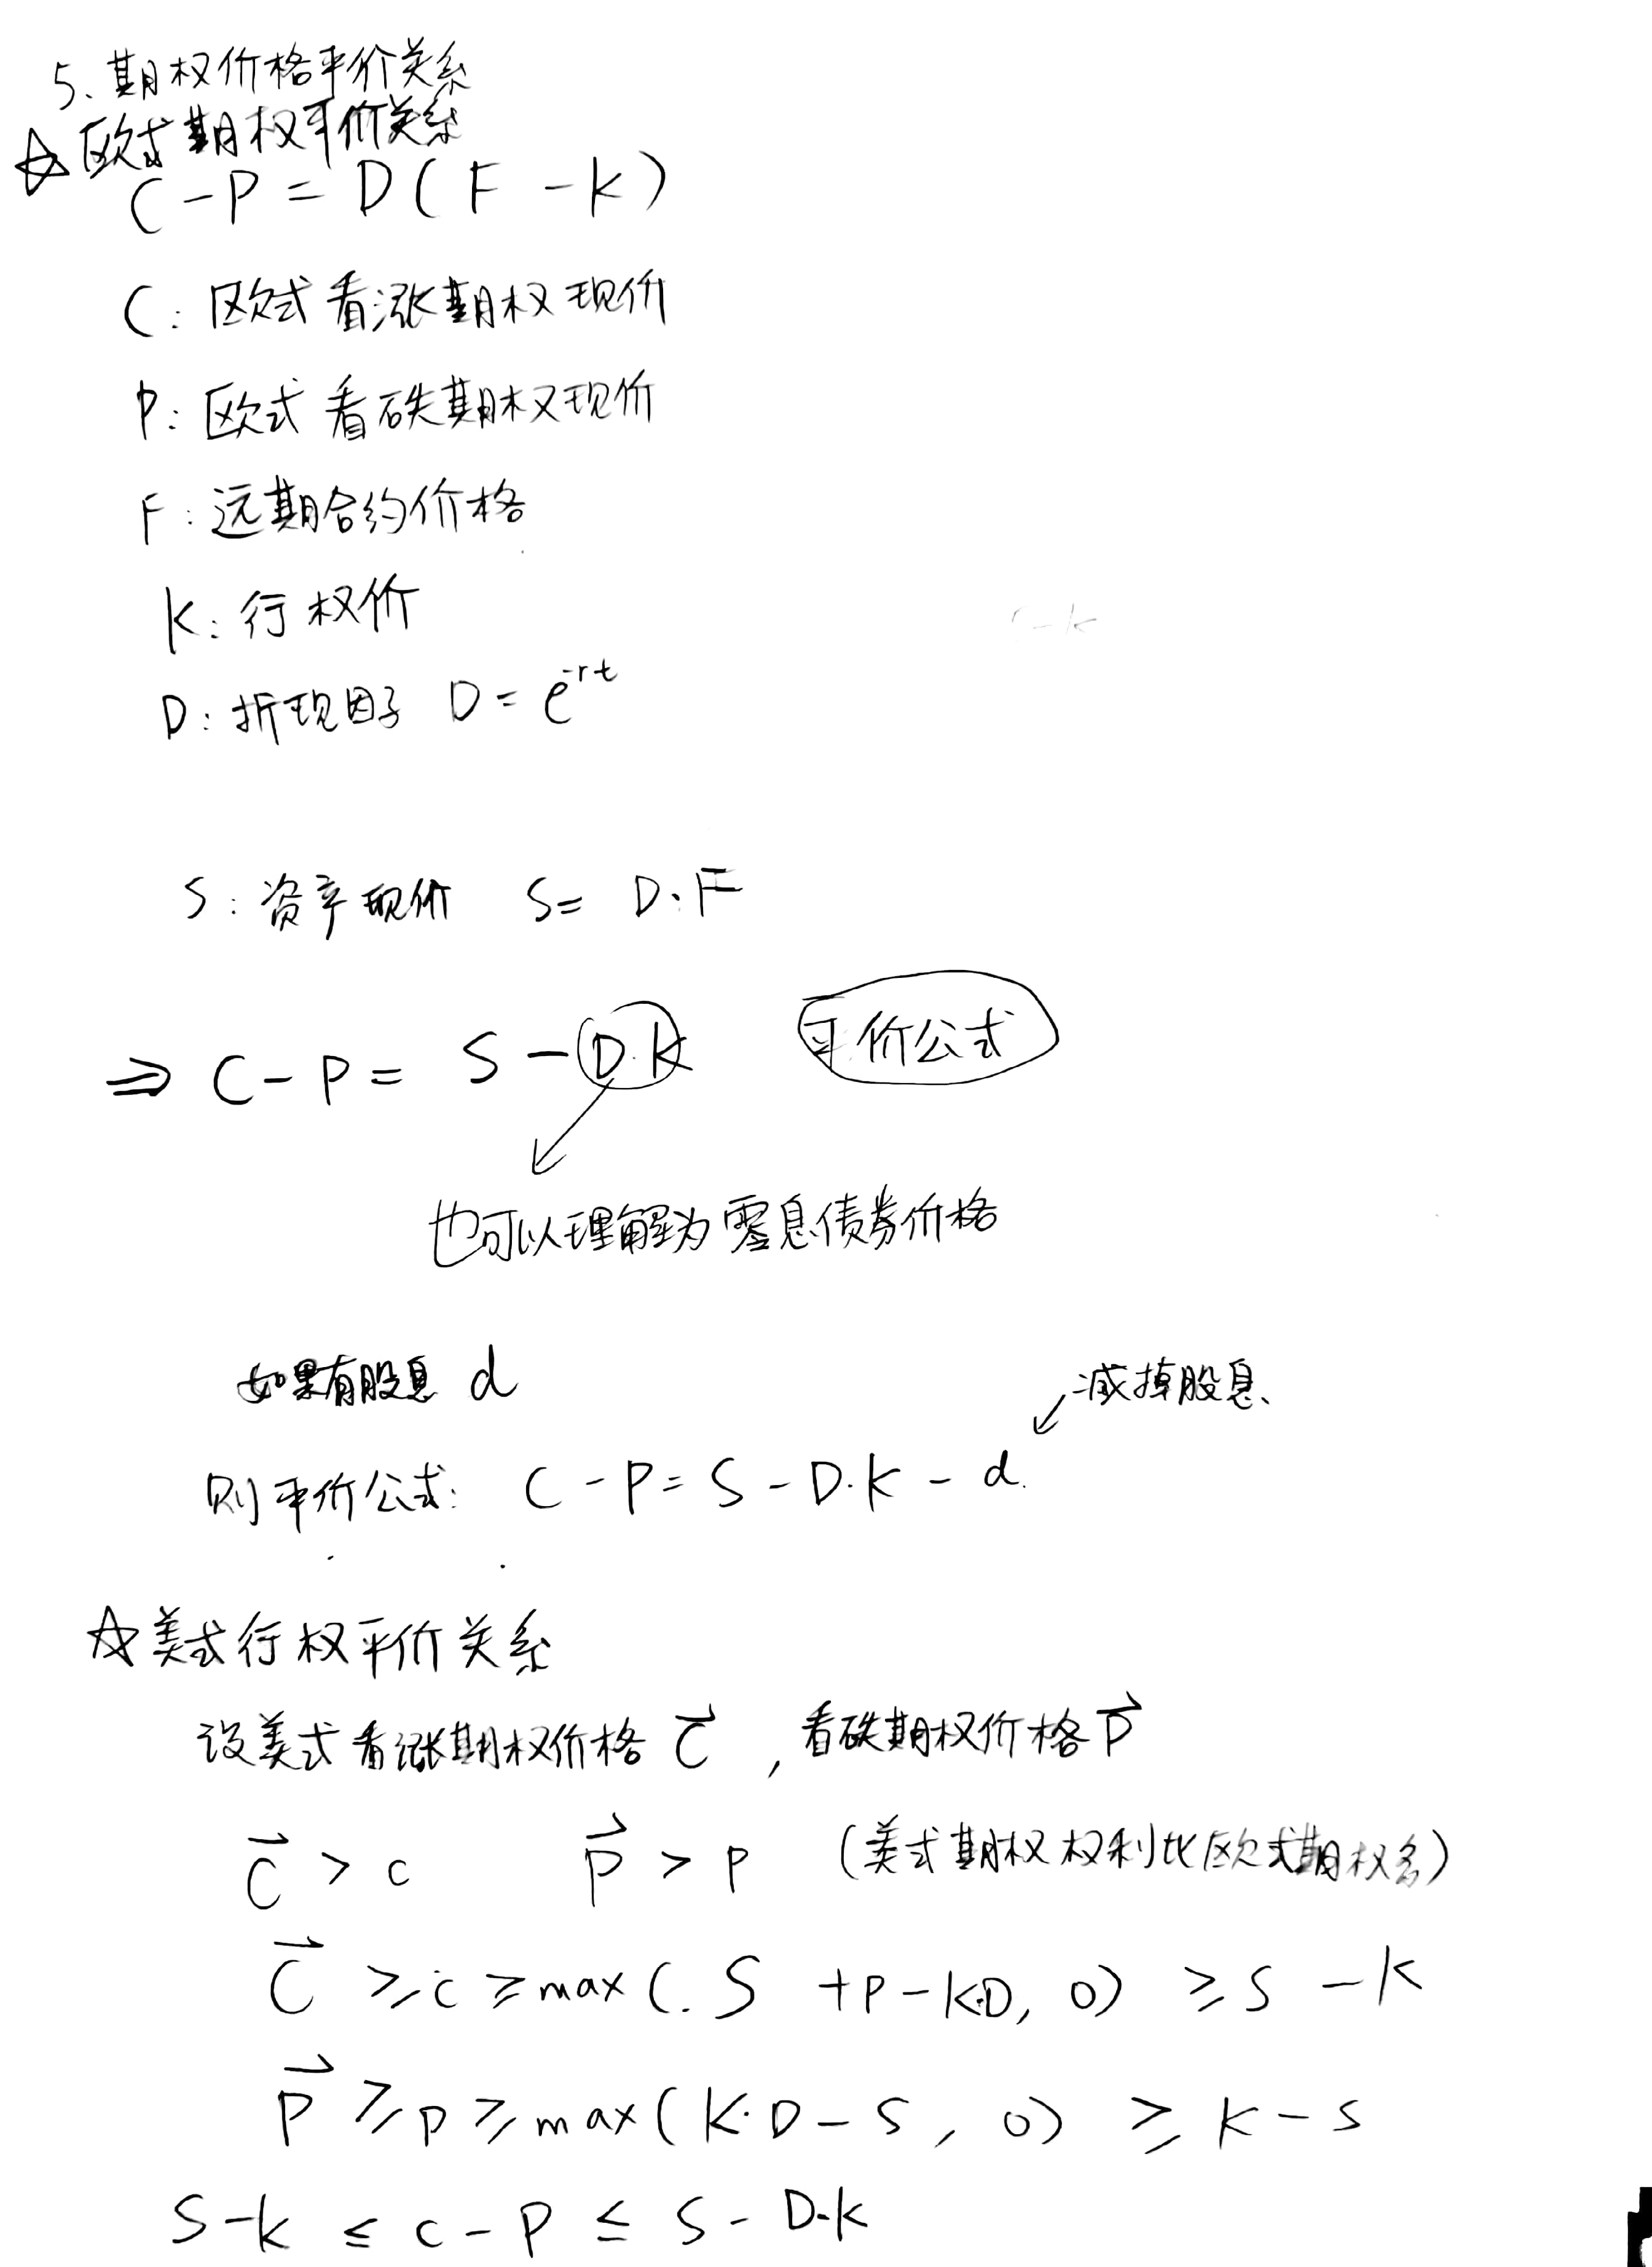 5、期权价格平价关系
☆欧式期权平价关系
C - P = D ( F - k )
C: 欧式看涨期权现价
P: 欧式看跌期权现价
F: 远期合约价格
K: 行权价
D: 折现因子 D = e^-rt
S: 资产现价 S = D·F
⇒ C - P = S - D·K 平价公式
也可以理解为零息债券价格
如果有股息 d
减掉股息、
则平价公式: C - P = S - D·K - d.
☆美式行权平价关系
设美式看涨期权价格 C⃗ , 看跌期权价格 P⃗
C⃗ > c P⃗ > p (美式期权权利比欧式期权多)
C⃗ ≥ c ≥ max (. S + p - K·D, 0) ≥ S - K
P⃗ ≥ p ≥ max ( K·D - S , 0) ≥ K - S
S - k ≤ c - p ≤ S - D·k